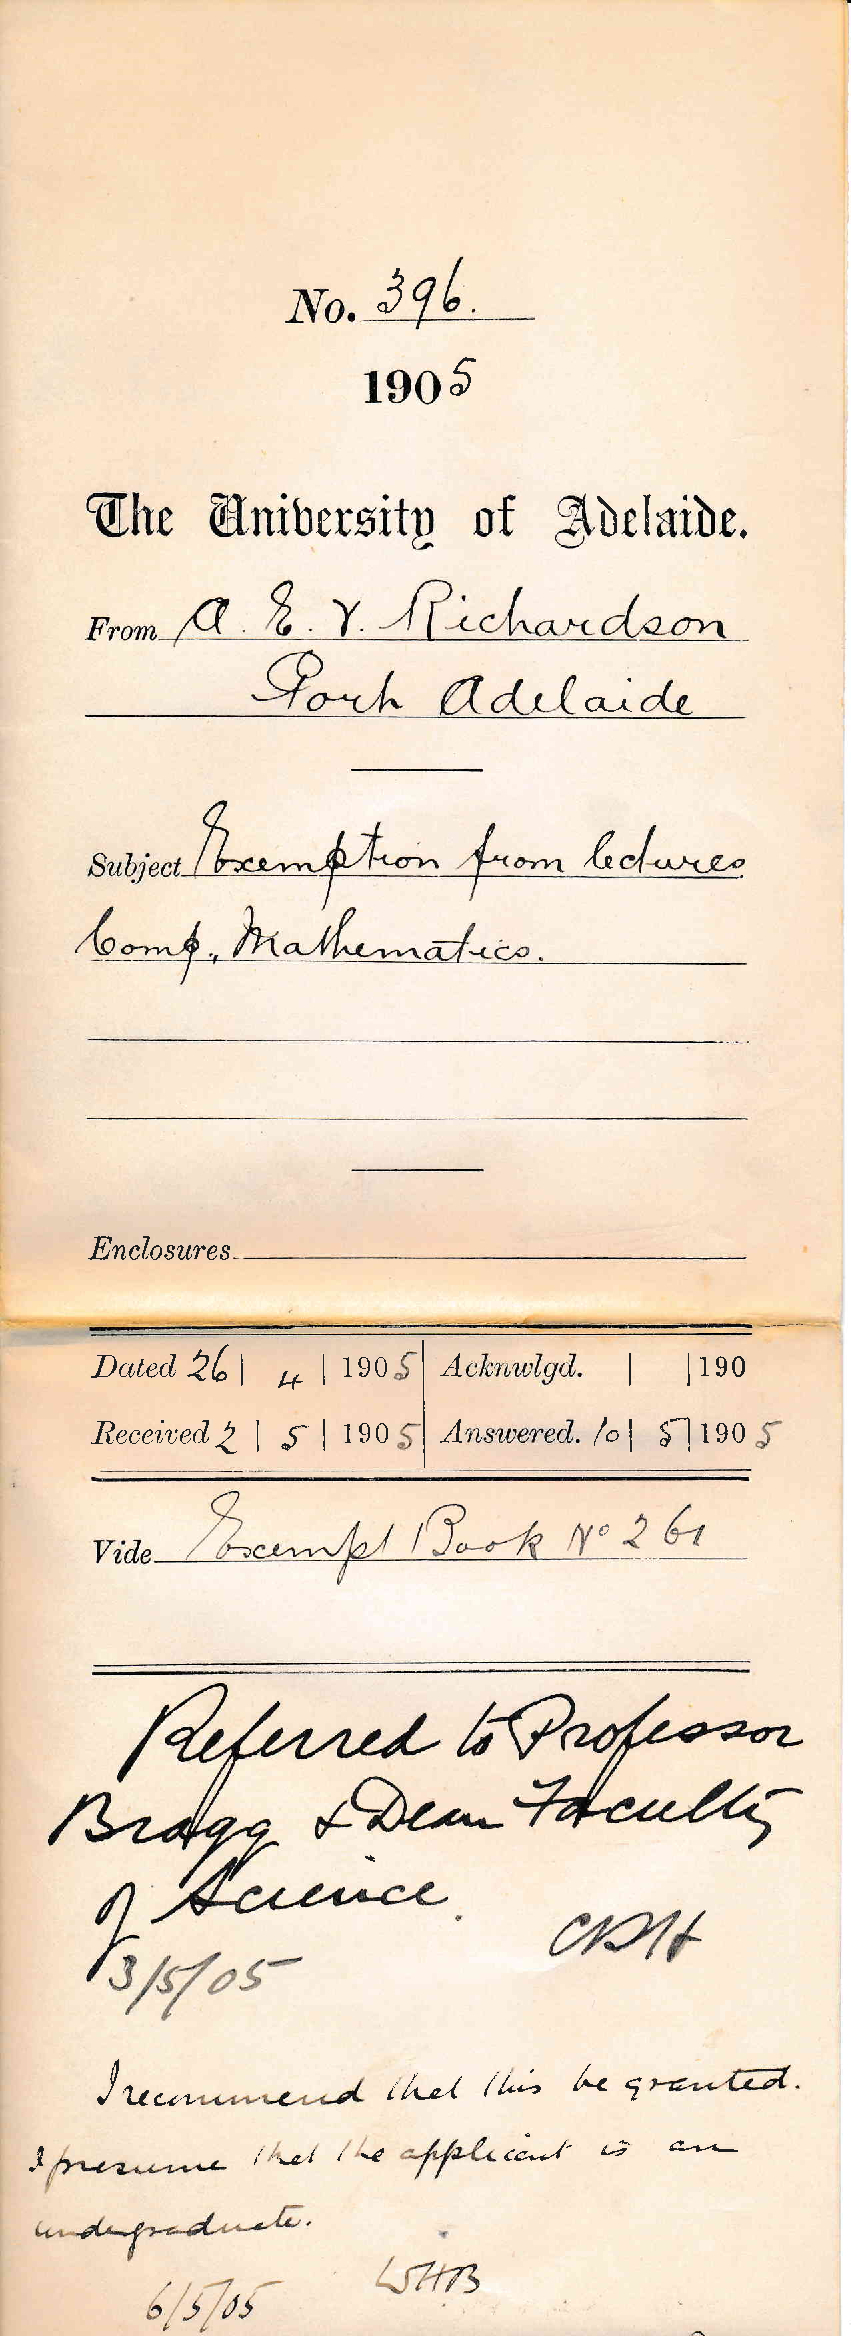 No. 396.
1905
The University of Adelaide.
From A. E. V. Richardson
Port Adelaide
Subject Exemption from lectures
Comp. Mathematics.
Enclosures
Dated 26 | 4 | 1905 Acknwlgd. | | 190
Received 2 | 5 | 1905 Answered. 10 | 5 | 1905
Vide Exempt Book No 261
Referred to Professor
Bragg & Dean Faculty
of Science.
CRH
3/5/05
I recommend that this be granted.
I presume that the applicant is an
undergraduate.
WHB
6/5/05